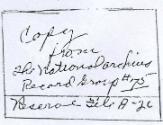 Copy
from
the National archives
Record Group #75
Reserve File A-26